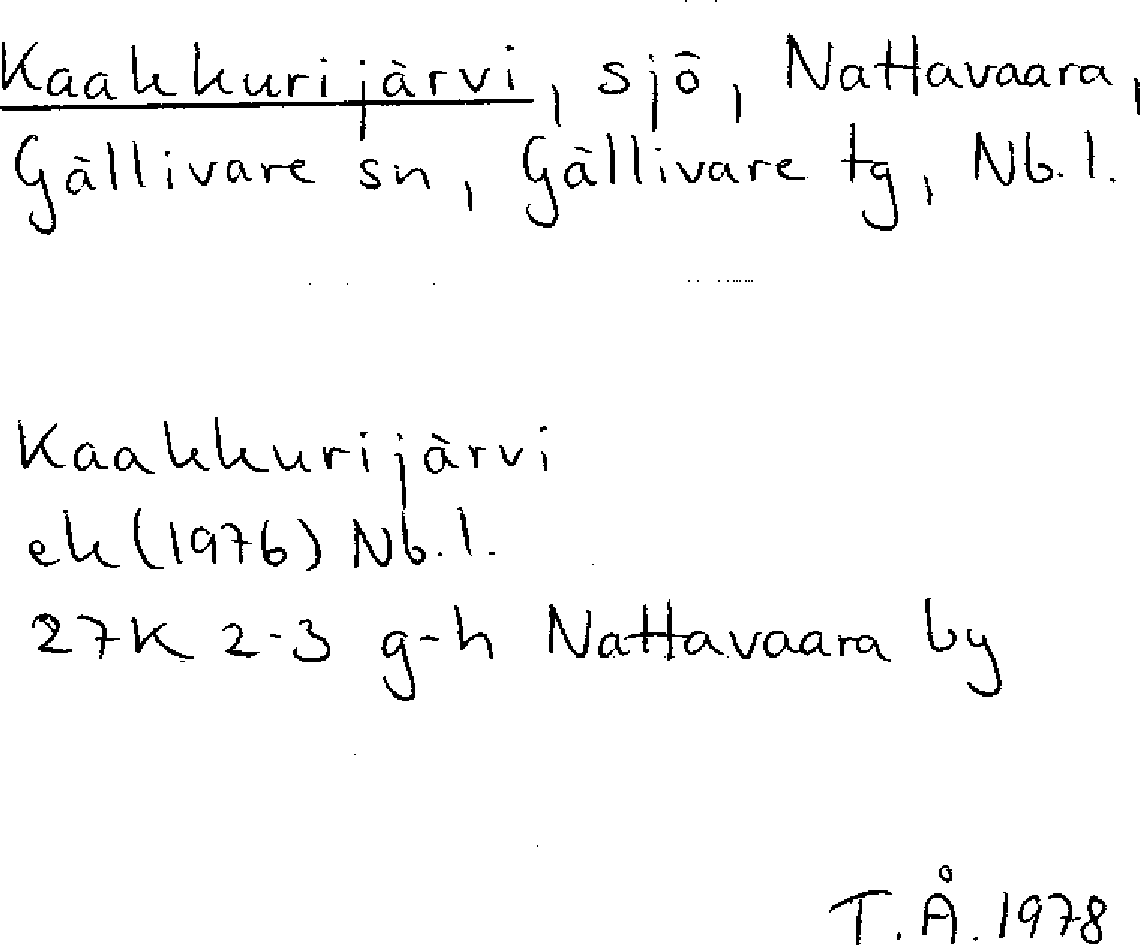 Kaakkurijärvi, sjö, Nattavaara,
Gällivare sn, Gällivare tg, Nb.l.
Kaakkurijärvi
ek (1976) Nb.l.
27K 2-3 g-h Nattavaara by
T.Å. 1978